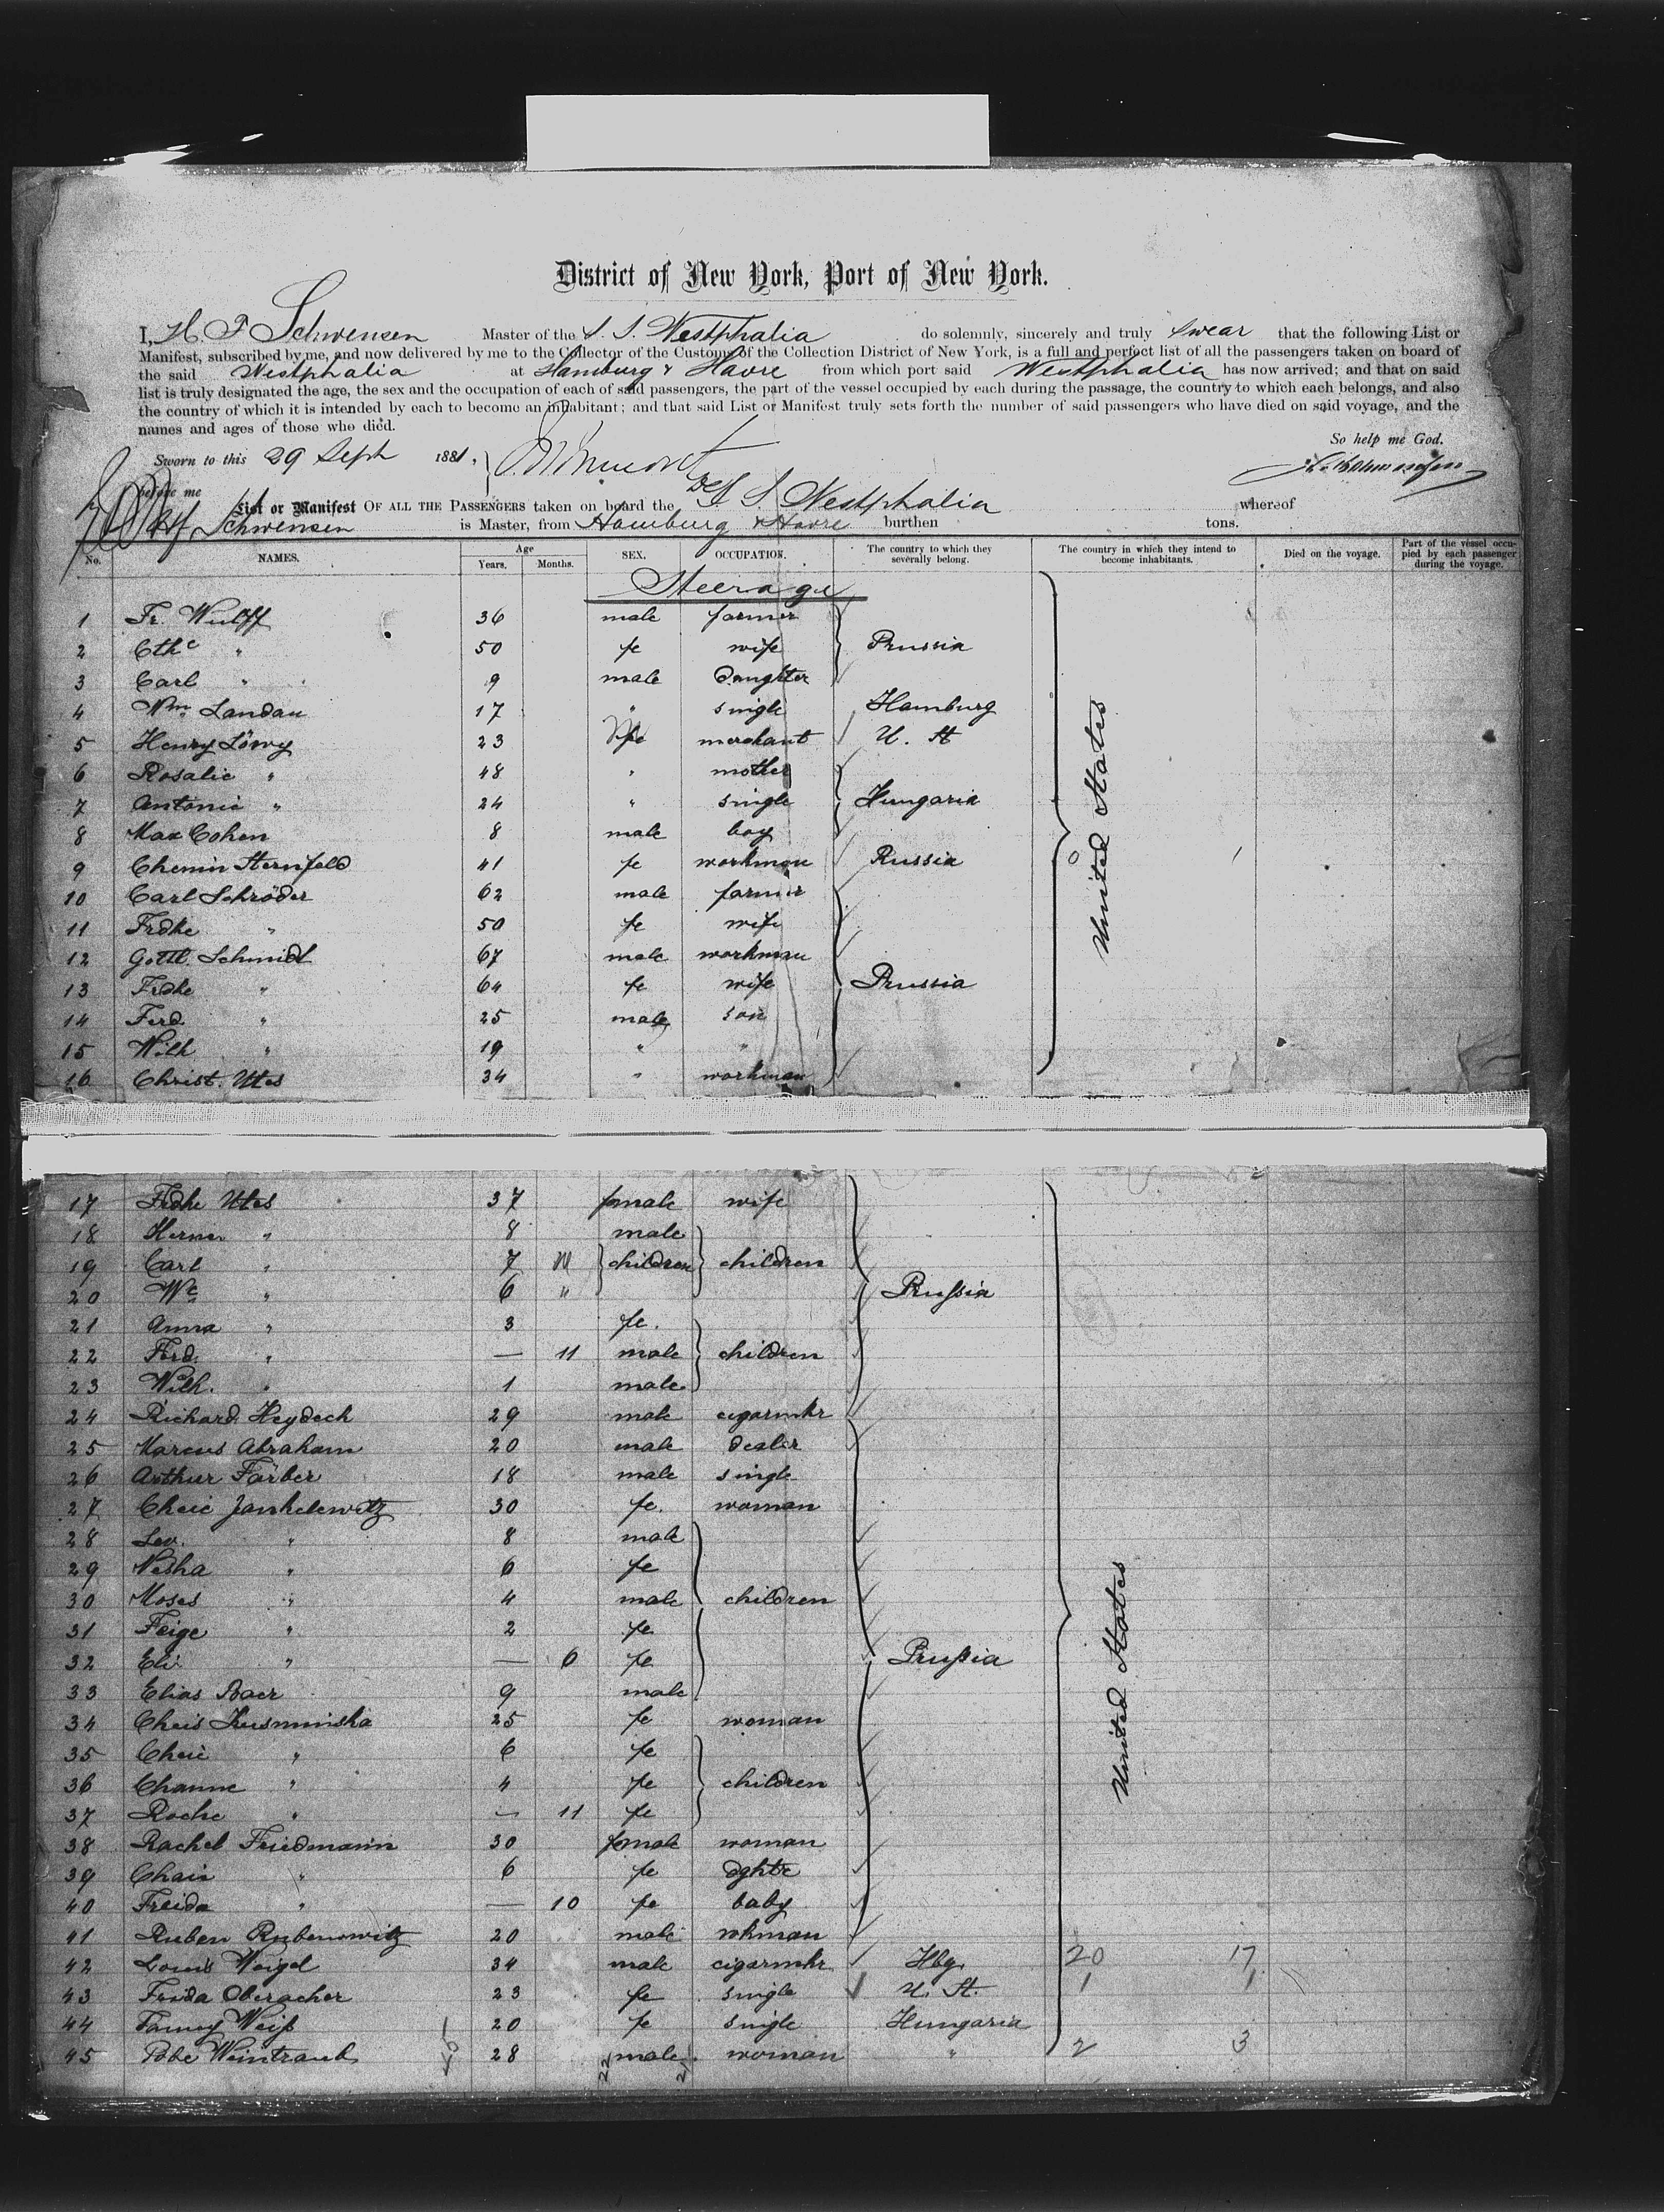 District of New York, Port of New York.
I, H. F Schwensen Master of the S. S. Westphalia do solemnly, sincerely and truly swear that the following List or
Manifest, subscribed by me, and now delivered by me to the Collector of the Customs of the Collection District of New York, is a full and perfect list of all the passengers taken on board of
the said Westphalia at Hamburg & Havre from which port said Westphalia has now arrived; and that on said
list is truly designated the age, the sex and the occupation of each of said passengers, the part of the vessel occupied by each during the passage, the country to which each belongs, and also
the country of which it is intended by each to become an inhabitant; and that said List or Manifest truly sets forth the number of said passengers who have died on said voyage, and the
names and ages of those who died.
So help me God.
Sworn to this 29 Sept 1881,
before me
List or Manifest OF ALL THE PASSENGERS taken on board the S. S. Westphalia whereof
Schwensen is Master, from Hamburg & Havre burthen tons.
No. NAMES. Age Years. Months. SEX. OCCUPATION. The country to which they severally belong. The country in which they intend to become inhabitants. Died on the voyage. Part of the vessel occupied by each passenger during the voyage.
Steerage
1 Fr. Wulff 36 male farmer
2 Cthe " 50 fe wife Prussia
3 Carl " 9 male Daughter
4 Wm Landau 17 " single Hamburg
5 Henry Löwy 23 merchant U. St
6 Rosalie " 48 " mother
7 Antonie " 24 " single Hungaria
8 Max Cohen 8 male boy
9 Chemin Sternfeld 41 fe workman Russia
10 Carl Schröder 62 male farmer
11 Frdke " 50 fe wife
12 Gottl. Schmidt 67 male workman
13 Frdke " 64 fe wife Prussia
14 Ferd " 25 male son
15 Wilh " 19 " "
16 Christ. Utes 34 " workman
United States
17 Frdke Utes 37 female wife
18 Herm " 8 male
19 Carl " 7 children children
20 We " 6 " Prussia
21 Anna " 3 fe.
22 Ferd. " — 11 male children
23 Wilh. " 1 male
24 Richard Heydech 29 male cigarmkr
25 Marcus Abraham 20 male dealer
26 Arthur Färber 18 male single
27 Cheie Jankelewitz 30 fe. woman
28 Lev. " 8 male
29 Nesha " 6 fe
30 Moses " 4 male children
31 Feige " 2 fe
32 Eli " — 6 fe Prussia
33 Elias Baer 9 male
34 Cheis Kusminska 25 fe woman
35 Cheie " 6 fe
36 Channe " 4 fe children
37 Roche " — 11 fe
38 Rachel Friedmann 30 female woman
39 Chais " 6 fe dghtr
40 Freida " — 10 fe baby
41 Ruben Rubenowitz 20 male wkman
42 Louis Weigel 34 male cigarmkr Hbg. 20 17
43 Frida Oberacher 23 fe single U. St. 1 1
44 Fanny Weiß 20 fe single Hungaria
45 Pobe Weintraub 28 male woman " 2 3
United States